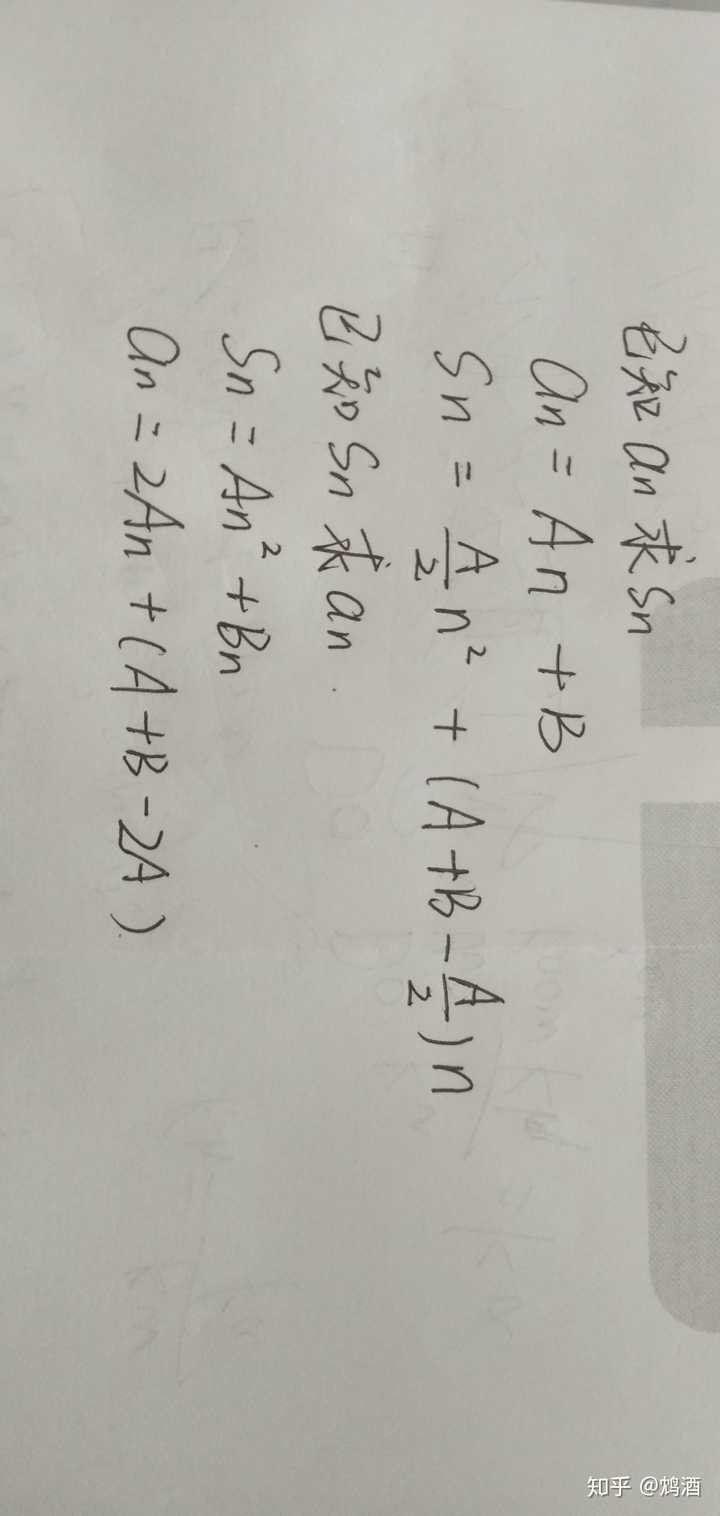 已知 an 求 Sn
an = An + B
Sn = A/2 n² + (A+B-A/2)n
已知 Sn 求 an.
Sn = An² + Bn
an = 2An + (A+B-2A)
知乎 @鸩酒